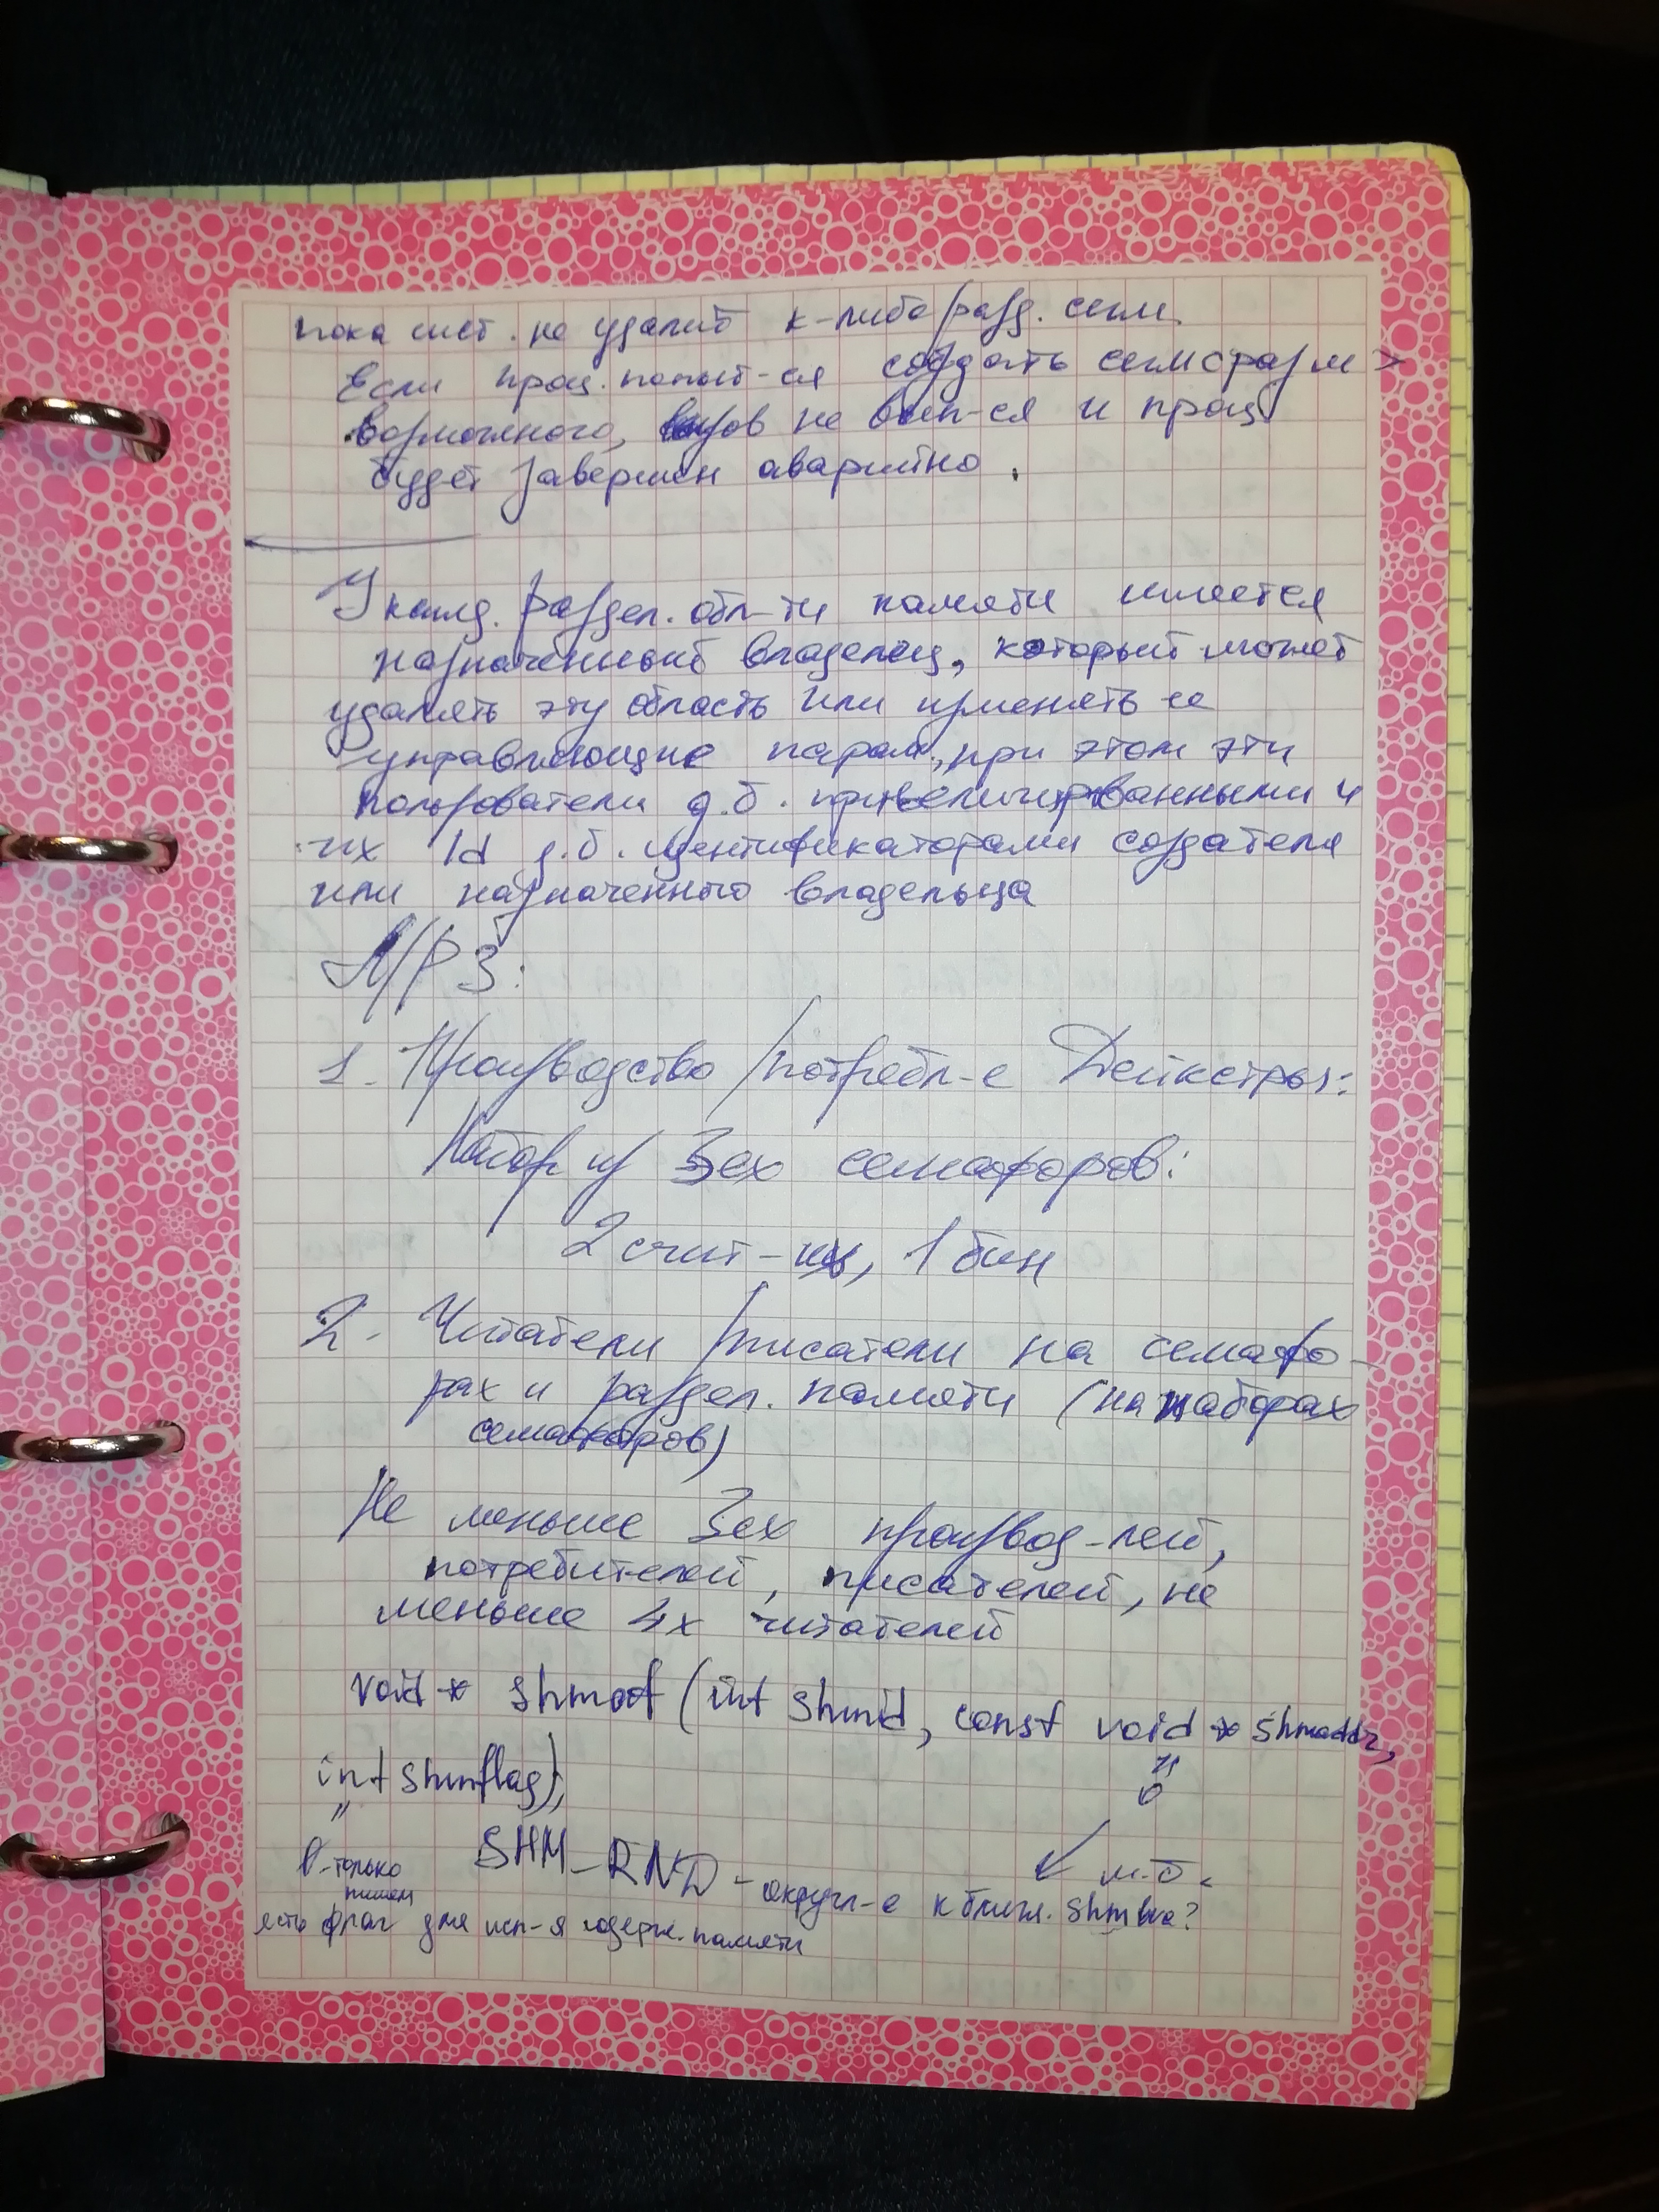 пока сист. не удалит к-либо разд. сегм.
Если проц. попыт-ся создать сегм с разм >
возможного, вызов не вып-ся и проц
будет завершен аварийно.
У кажд. раздел. обл-ти памяти имеется
назначенный владелец, который может
удалять эту область или изменять ее
управляющие парам., при этом эти
пользователи д.б. привелигированными и
их Id д.б. идентификаторами создателя
или назначенного владельца
Л/Р 3:
1. Производство/потребл-е Дейкстры:
Набор из 3ех семафоров:
2 счит-их, 1 бин
2. Читатели/писатели на семафо-
рах и раздел. памяти (на наборах
семафоров)
Не меньше 3ех производ-лей,
потребителей, писателей, не
меньше 4х читателей
void* shmat (int shmid, const void* shmaddr,
int shmflag);
"
0
"
0-только
пишем
SHM_RND - округл-е к ближ. shmlva?
м.б.
есть флаг для исп-я содерж. памяти